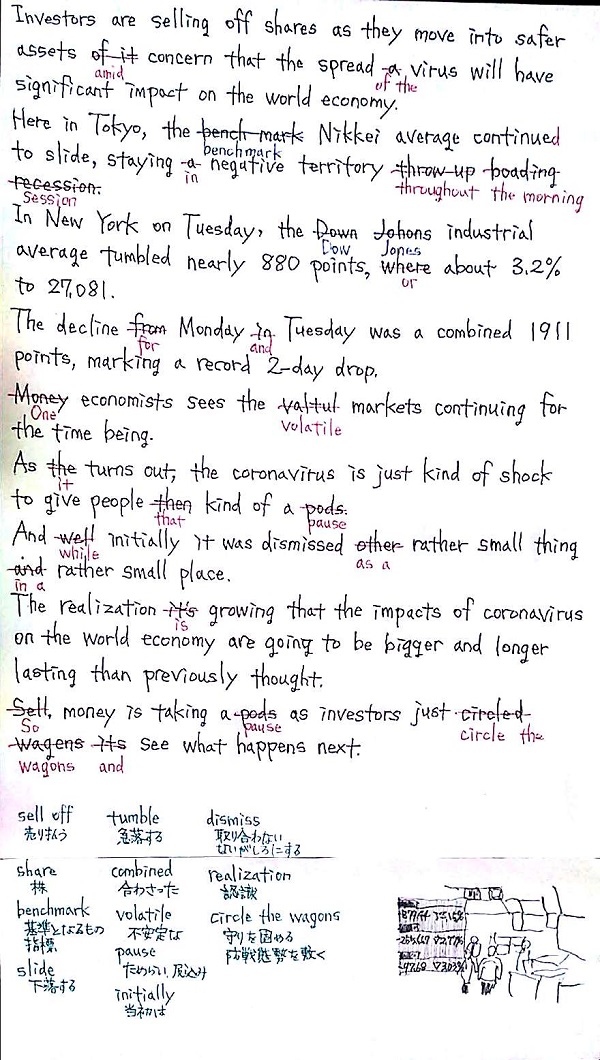 Investors are selling off shares as they move into safer
assets of it concern that the spread a virus will have
amid of the
significant impact on the world economy.
Here in Tokyo, the bench mark Nikkei average continued
benchmark
to slide, staying a negative territory throw up boading
in throughout the morning
recession.
session
In New York on Tuesday, the Down Johons industrial
Dow Jones
average tumbled nearly 880 points, where about 3.2%
or
to 27,081.
The decline from Monday in Tuesday was a combined 1911
for and
points, marking a record 2-day drop.
Money economists sees the valtul markets continuing for
One volatile
the time being.
As the turns out, the coronavirus is just kind of shock
it
to give people then kind of a pods.
that pause
And well initially it was dismissed other rather small thing
while as a
and rather small place.
in a
The realization it's growing that the impacts of coronavirus
is
on the world economy are going to be bigger and longer
lasting than previously thought.
Sell, money is taking a pods as investors just circled
So pause circle the
wagens its see what happens next.
wagons and
sell off tumble dismiss
売り払う 急落する 取り合わない
ないがしろにする
share combined realization
株 合わさった 認識
benchmark volatile circle the wagons
基準となるもの 不安定な 守りを固める
指標 pause 防戦態勢を敷く
slide ためらい, 尻込み
下落する initially
当初は